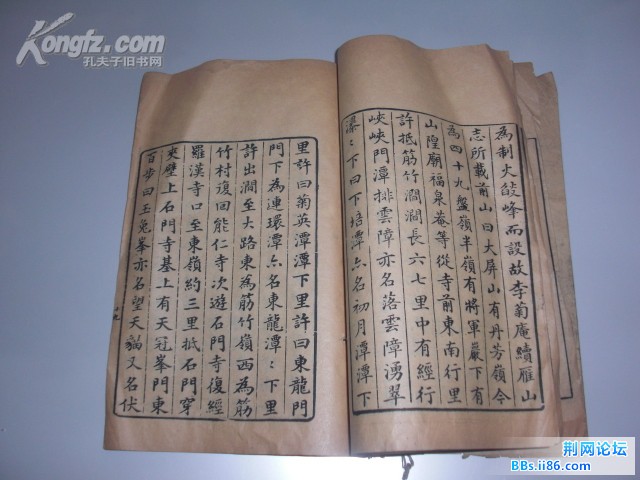 Kongfz.com
孔夫子旧书网
為制火皷峰而設故李菊庵續雁山
志所載前山曰大屏山有丹芳嶺今
為四十九盤嶺半嶺有將軍巖下有
山隍廟福泉菴等從寺前東南行里
許抵筋竹澗澗長六七里中有經行
峽峽門潭排雲障亦名落雲障湧翠
瀑:下曰下培潭亦名初月潭潭下
里許曰菊英潭潭下里許曰東龍門
門下為連環潭亦名東龍潭:下里
許出澗至大路東為筋竹嶺西為筋
竹村復回能仁寺次遊石門寺復經
羅漢寺口至東嶺約三里抵石門穿
夾壁上石門寺基上有天冠峯門東
百步曰玉兔峯亦名望天 又名伏
荆网论坛
BBs.ii86.com